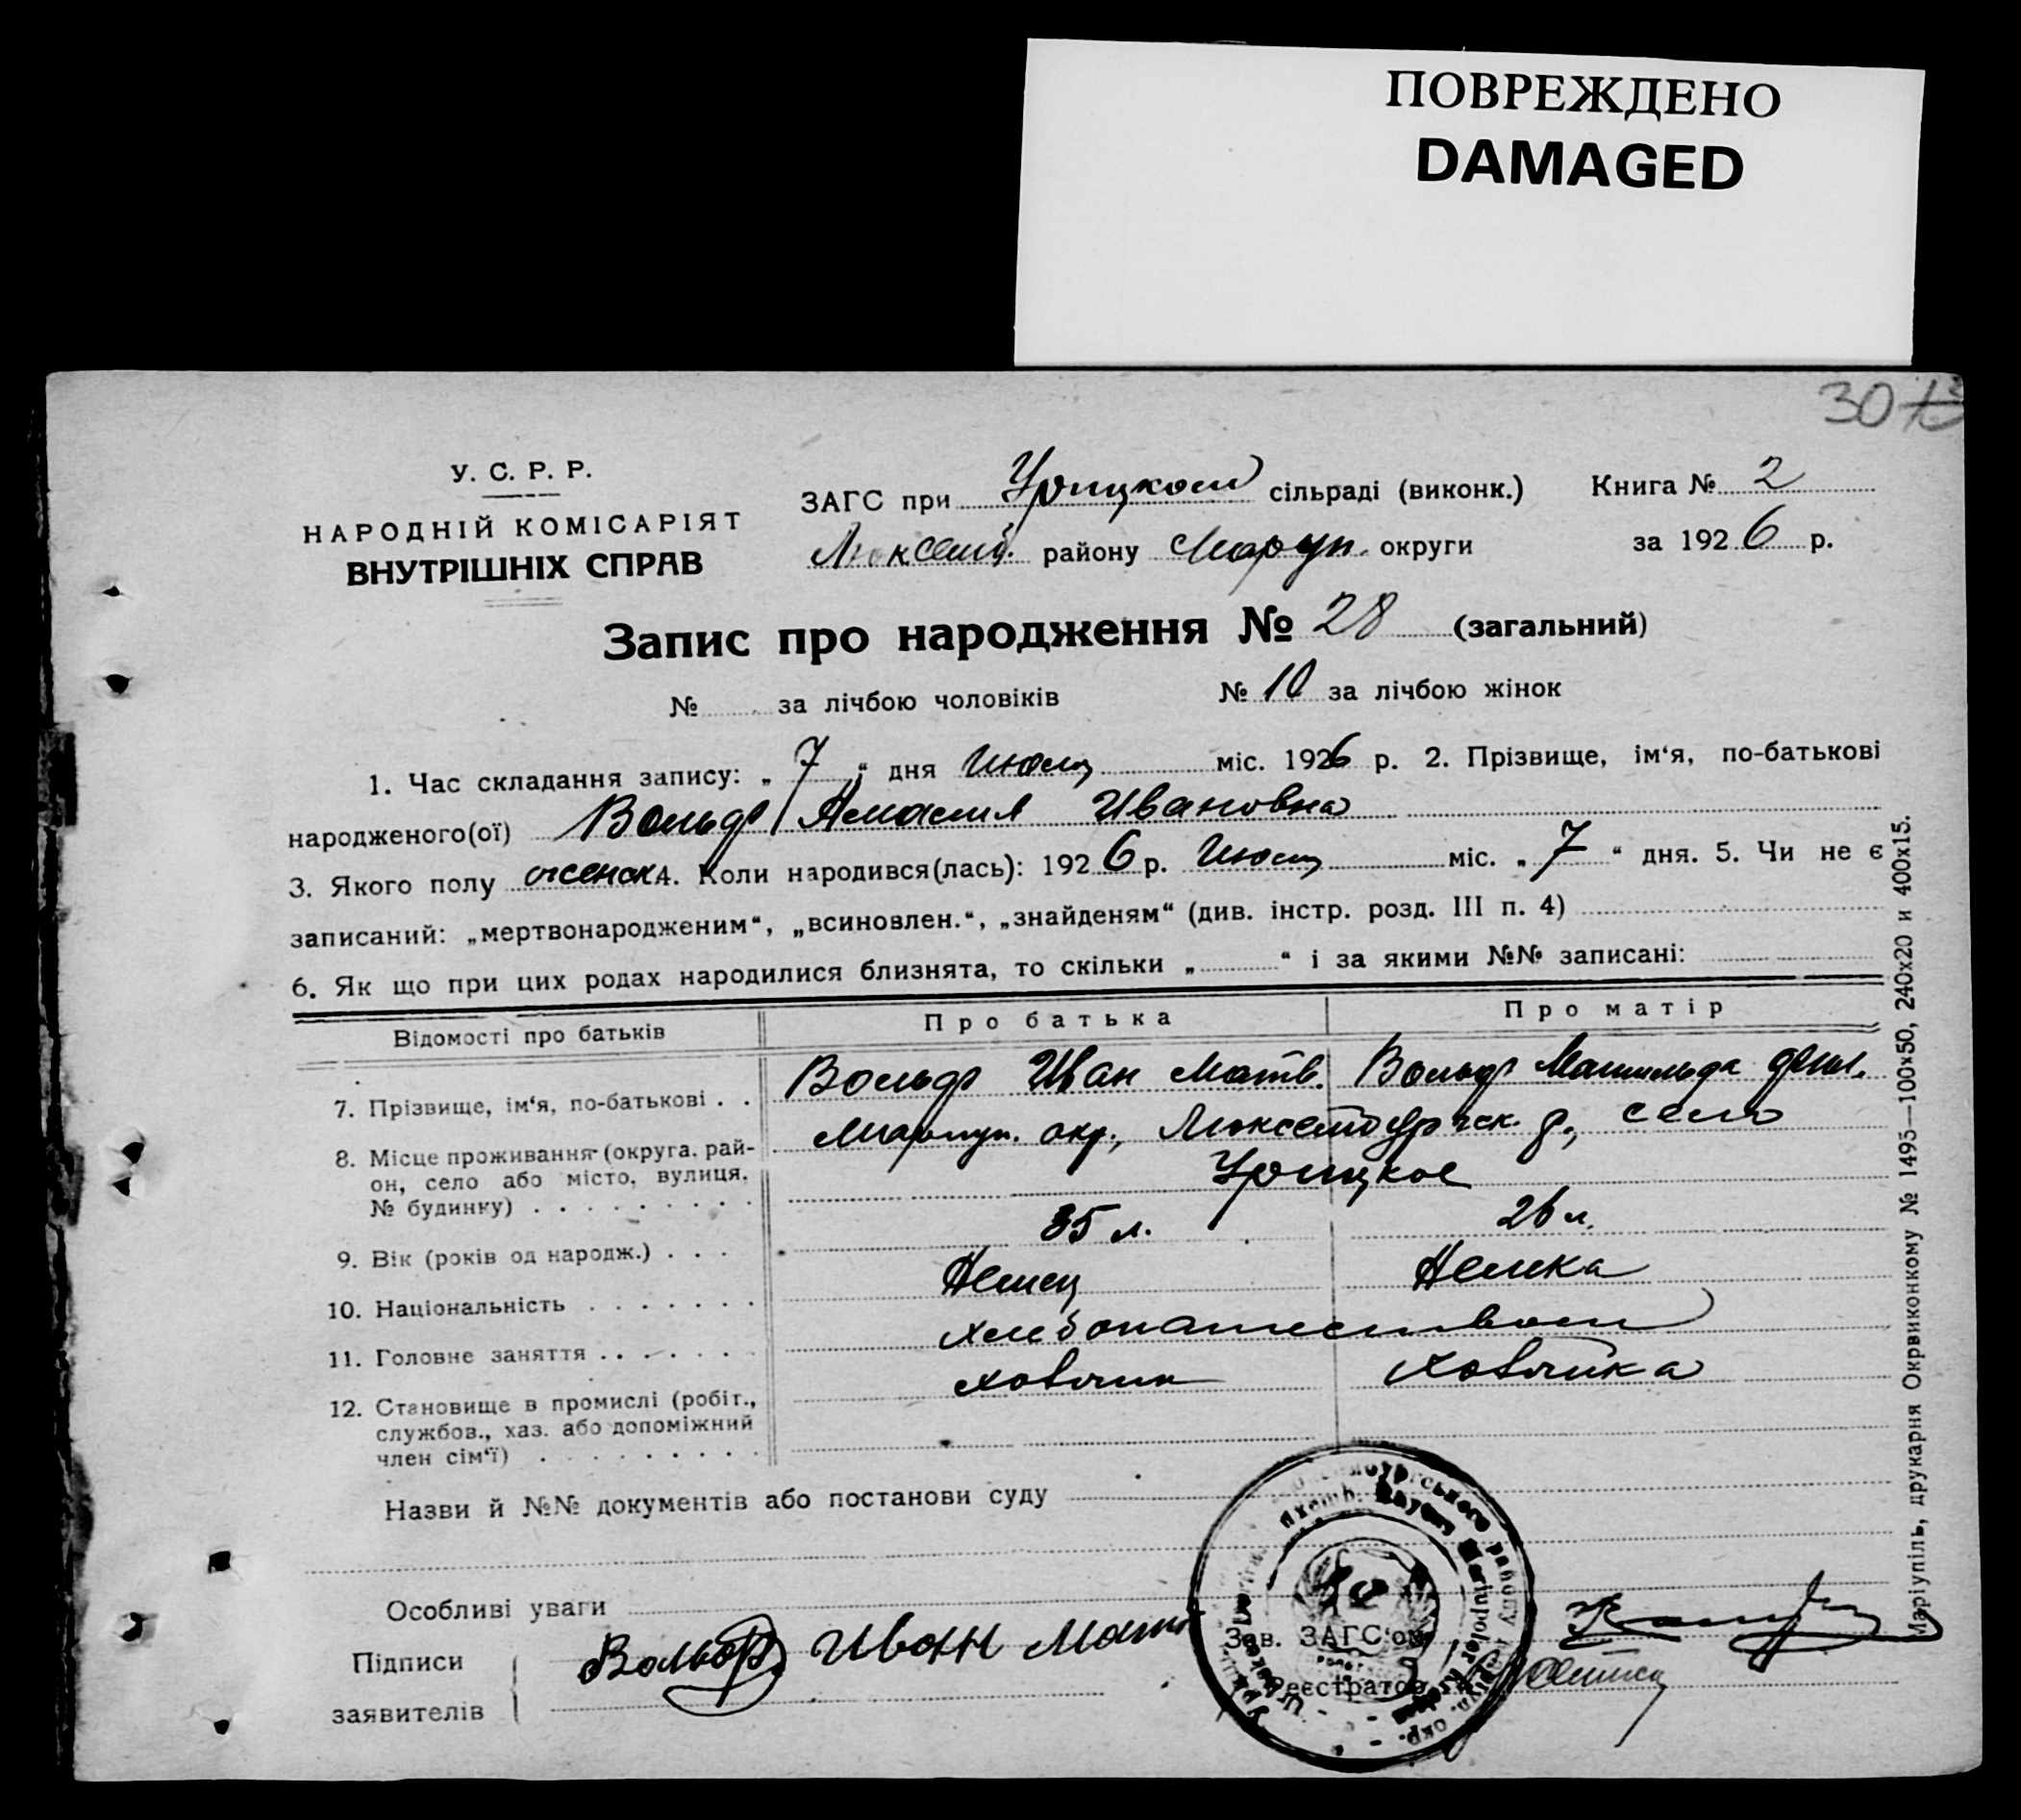 ПОВРЕЖДЕНО
DAMAGED
30
У. С. Р. Р.
НАРОДНІЙ КОМІСАРІЯТ
ВНУТРІШНІХ СПРАВ
ЗАГС при Урицком сільраді (виконк.) Книга № 2
Люксемб. району Мариуп. округи за 1926 р.
Запис про народження № 28 (загальний)
№ за лічбою чоловіків № 10 за лічбою жінок
1. Час складання запису: „ 7 “ дня Июля міс. 1926 р. 2. Прізвище, ім‘я, по-батькові
народженого(ої) Вольф Амалия Ивановна
3. Якого полу женск 4. Коли народився(лась): 1926 р. Июля міс. „ 7 “ дня. 5. Чи не є
записаний: „мертвонародженим“, „всиновлен.“, „знайденям“ (див. інстр. розд. III п. 4)
6. Як що при цих родах народилися близнята, то скільки „ “ і за якими №№ записані:
Відомості про батьків Про батька Про матір
7. Прізвище, ім‘я, по-батькові . . Вольф Иван Матв. Вольф Матильда
8. Місце проживання (округа, рай-
он, село або місто, вулиця,
№ будинку) . . . . . . . . . Мариуп. окр., Люксембургск. р., село
Урицкое
9. Вік (років од народж.) . . . 35 л. 26 л.
10. Національність . . . . . . . Немец Немка
11. Головне заняття . . . . . . . хлебопашеством
12. Становище в промислі (робіт.,
службов., хаз. або допоміжний
член сім‘ї) . . . . . . . . . хозяин хозяйка
Назви й №№ документів або постанови суду
Особливі уваги
Підписи
заявителів
Вольф Иван Матв
Зав. ЗАГС‘ом
Реєстратор
Маріупіль, друкарня Окрвиконкому № 1495—100×50, 240×20 и 400×15.